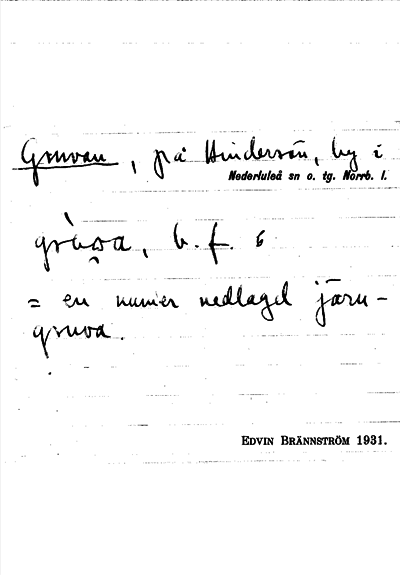 Gruvan, på Hindersön, by i
Nederluleå sn o. tg. Norrb. l.
b. f. 6
= en numer nedlagd järn-
gruva.
EDVIN BRÄNNSTRÖM 1931.